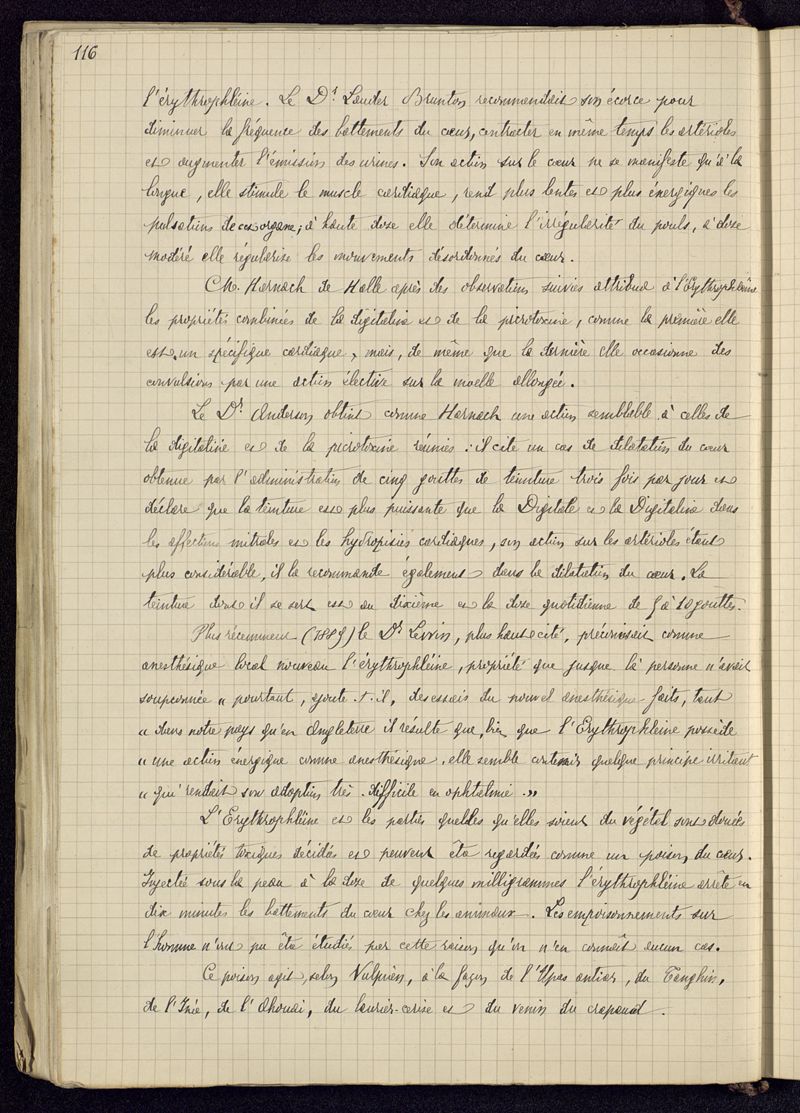 116
l'érythrophléine. Le Dr Lauder Brunton recommandait son écorce pour
diminuer la fréquence des battements du cœur, contracter en même temps les artérioles
et augmenter l'émission des urines. Son action sur le cœur ne se manifeste qu'à la
longue, elle stimule le muscle cardiaque, rend plus lentes et plus énergiques les
pulsations de cet organe; à haute dose elle détermine l'irrégularité du pouls, à dose
modéré elle régularise les mouvements désordonnés du cœur.
M. Harnach de Halle après des observations suivies attribua à l'Erythrophléine
les propriétés combinées de la digitaline et de la picrotoxine, comme la première elle
est un spécifique cardiaque, mais, de même que la dernière elle occasionne des
convulsions par une action élective sur la moelle allongée.
Le Dr Anderson obtint comme Harnach une action semblable à celles de
la digitaline et de la picrotoxine réunies: il cite un cas de dilatation du cœur
obtenue par l'administration de cinq gouttes de teinture trois fois par jour et
déclare que la teinture est plus puissante que la Digitale et la Digitaline dans
les affections mitrales et les hydropisies cardiaques, son action sur les artérioles étant
plus considérable, il la recommande également dans la dilatation du cœur. La
teinture dont il se sert est au dixième et la dose quotidienne de 5 à 10 gouttes.
Plus récemment (1889) le Dr Lewin, plus haut cité, préconisait comme
anesthésique local nouveau l'érythrophléine, propriété que jusque là personne n'avait
soupçonnée " pourtant, ajoute-t-il, des essais du nouvel anesthésique faits, tant
" dans notre pays qu'en Angleterre il résulte que, bien que l'Erythrophléine possède
" une action énergique comme anesthésique, elle semble contenir quelque principe irritant
" qui rendait son adoption très difficile en ophtalmie. "
L'Erythrophléine et les parties quelles qu'elles soient du végétal sont douées
de propriétés toxiques décidés et peuvent être regardés comme un poison du cœur.
Injectée sous la peau à la dose de quelques milligrammes l'érythrophléine arrête en
dix minutes les battements du cœur chez les animaux. Les empoisonnements sur
l'homme n'ont pu être étudiés par cette raison qu'on n'en connaît aucun cas.
Ce poison agit, selon Vulpien, à la façon de l'Upas antiar, du Tanghin,
de l'Inée, de l'Ahouai, du laurier-cerise et du venin du crapaud.